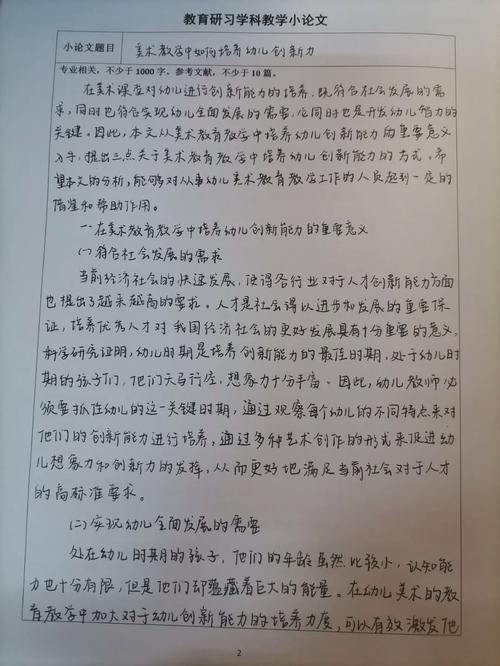 教育研习学科教学小论文
小论文题目 美术教学中如何培养幼儿创新力
专业相关,不少于1000字。参考文献,不少于10篇。
在美术课堂对幼儿进行创新能力的培养,既符合社会发展的需
求,同时也符合实现幼儿全面发展的需要,同时也是开发幼儿智力的
关键。因此,本文从美术教育教学中培养幼儿创新能力的重要意义
入手,提出三点关于美术教育教学中培养幼儿创新能力的方式。希
望本文的分析,能够对从事幼儿美术教育教学工作的人员起到一定的
借鉴和帮助作用。
一.在美术教育教学中培养幼儿创新能力的重要意义
(一)符合社会发展的需求
当前经济社会的快速发展,使得各行业对于人才创新能力方面
也提出了越来越高的要求。人才是社会得以进步和发展的重要保
证,培养优秀人才对我国经济社会的更好发展具有十分重要的意义,
科学研究证明,幼儿时期是培养创新能力的最佳时期,处于幼儿时
期的孩子们,他们天马行空,想象力十分丰富。因此,幼儿教师必
须要抓住幼儿的这一关键时期,通过观察每个幼儿的不同特点来对
他们的创新能力进行培养,通过多种艺术创作的形式来促进幼
儿想象力和创新力的发挥,从而更好地满足当前社会对于人才
的高标准要求。
(二)实现幼儿全面发展的需要
处在幼儿时期的孩子,他们的年龄虽然比较小,认知能
力也十分有限,但是他们却蕴藏着巨大的能量。在幼儿美术的教
育教学中加大对于幼儿创新能力的培养力度,可以有效激发他
2